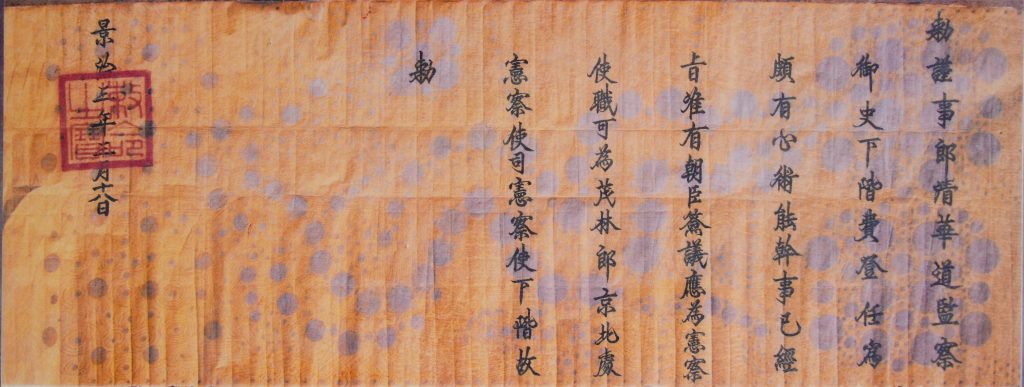 勅謹事郎清華道監察
御史下階費登任為
頗有心術能幹事已經
旨准有朝臣僉議應為憲察
使職可為茂林郎京北處
憲察使司憲察使下階故
勅
景治年月十八日